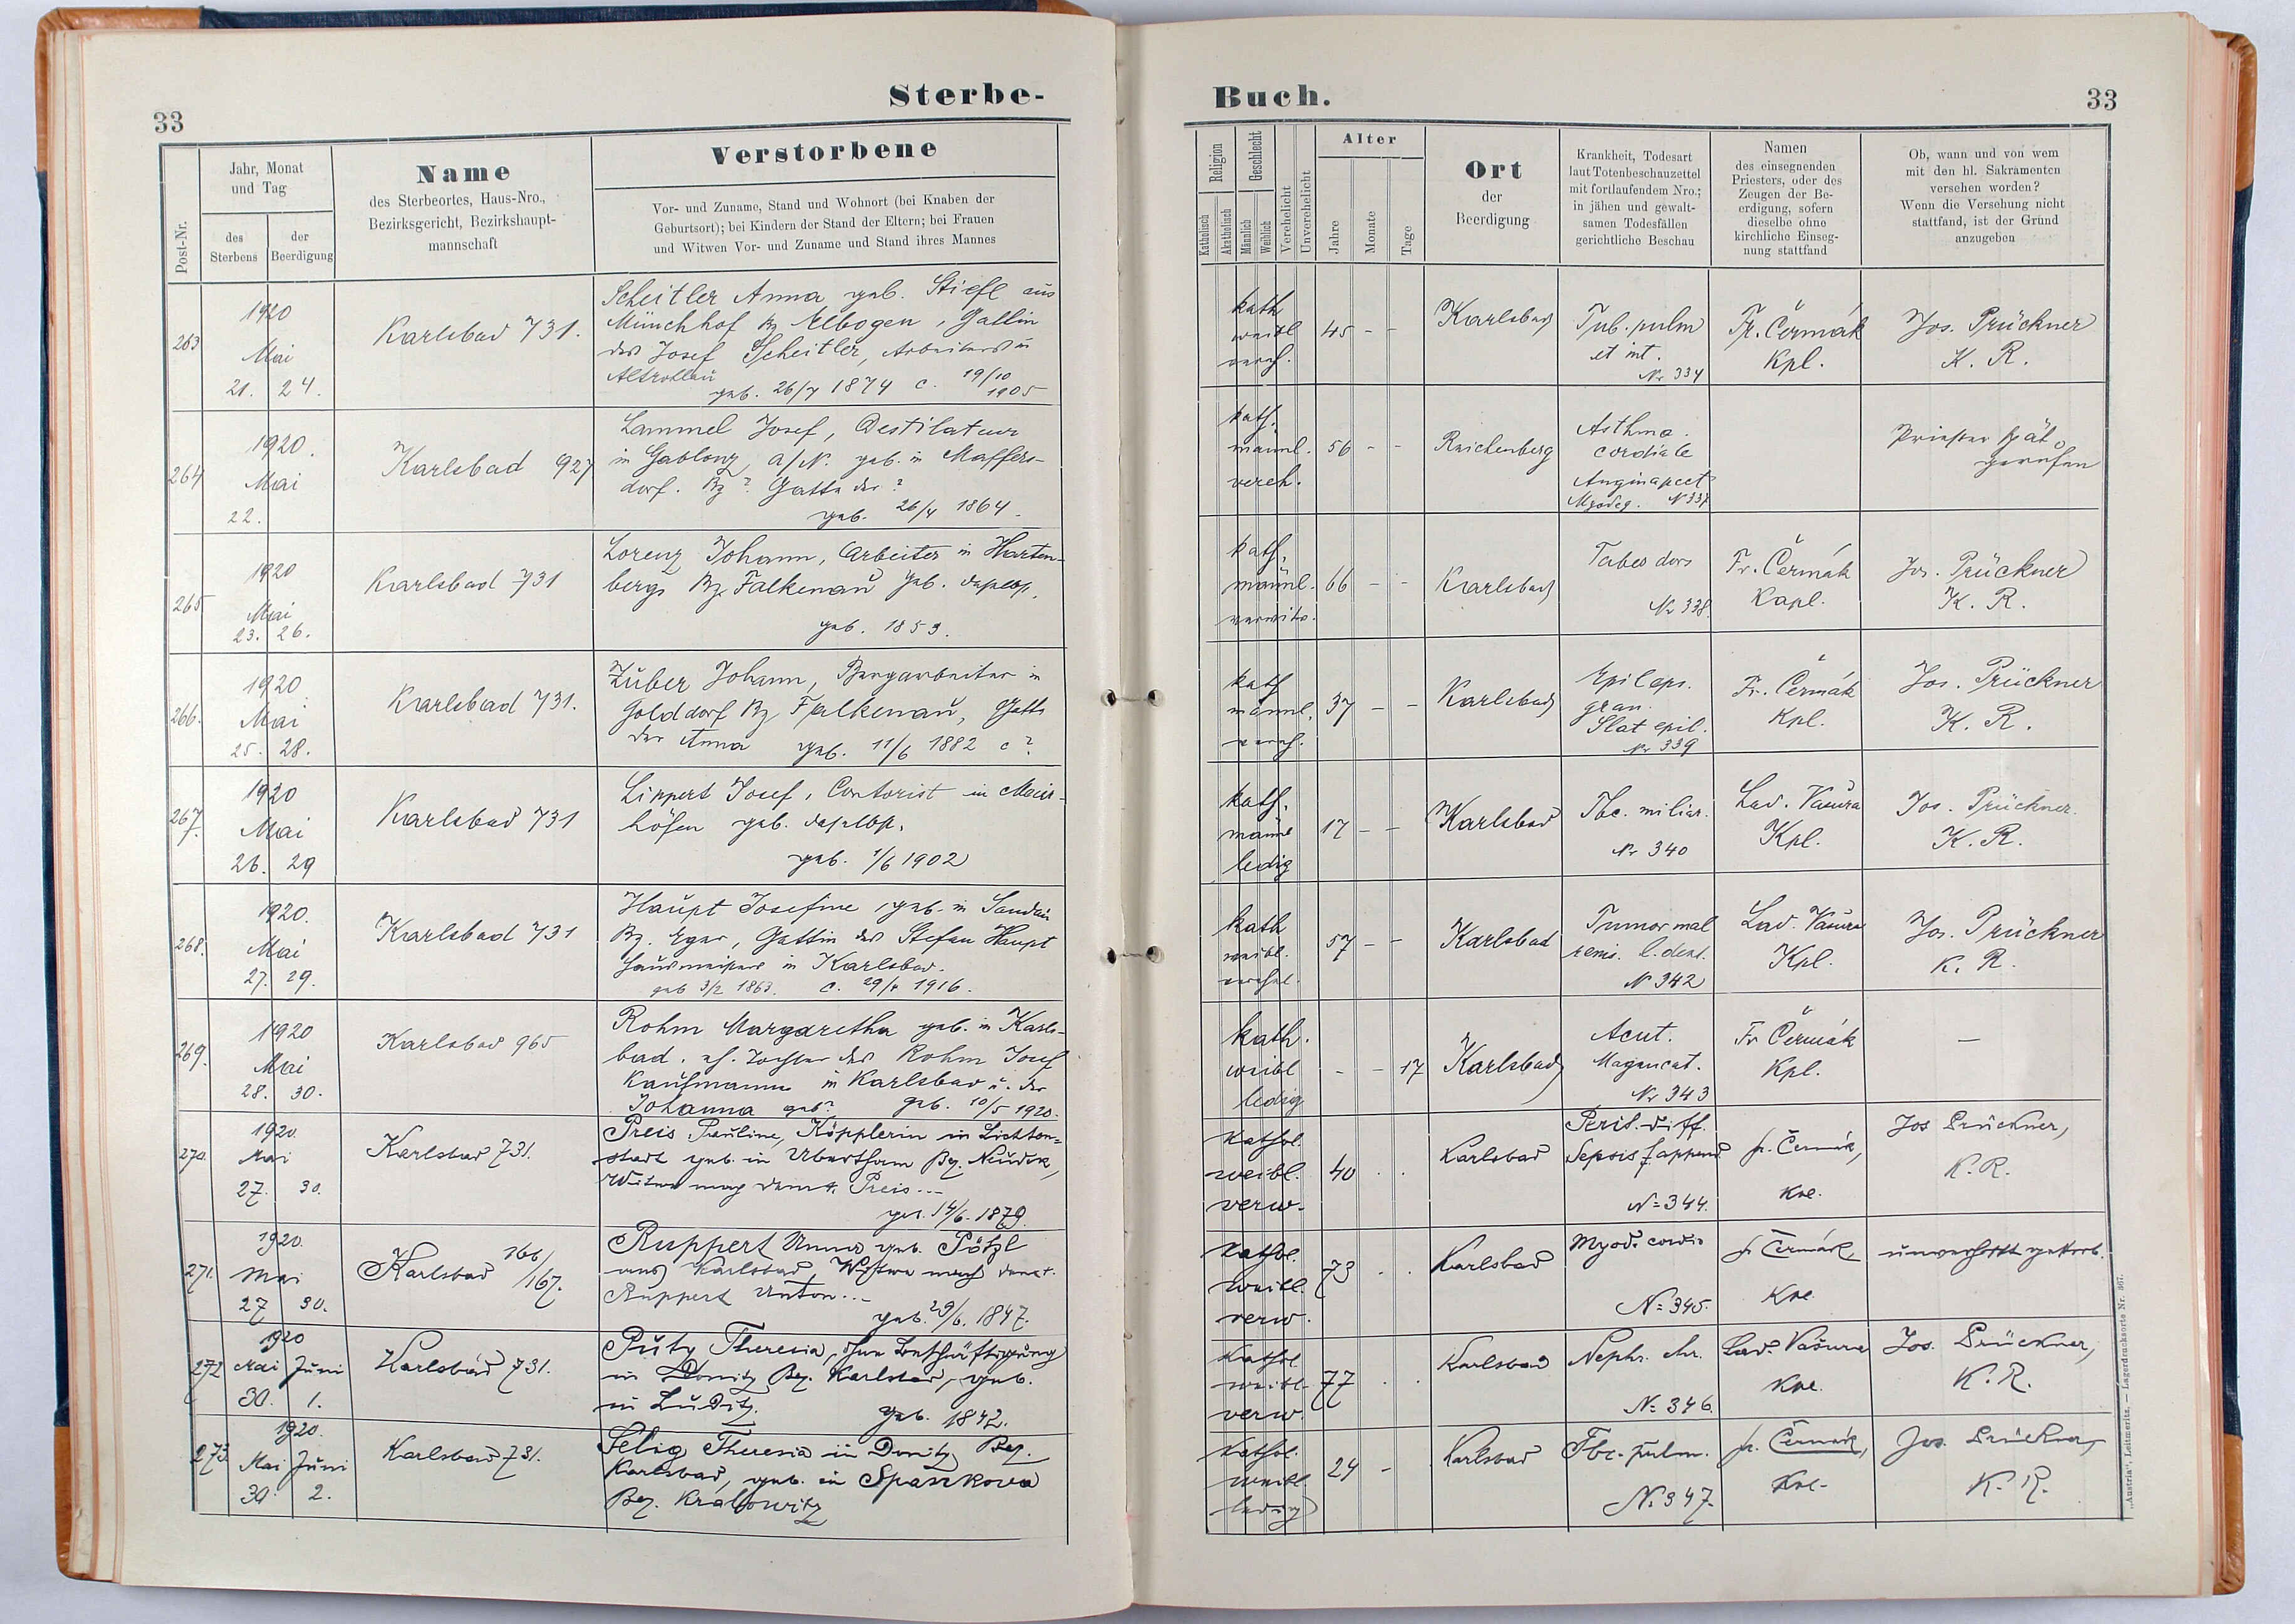 Sterbe-
33
Post-Nr.
Jahr, Monat
und Tag
des
Sterbens
der
Beerdigung
Name
des Sterbeortes, Haus-Nro.,
Bezirksgericht, Bezirkshaupt-
mannschaft
Verstorbene
Vor- und Zuname, Stand und Wohnort (bei Knaben der
Geburtsort); bei Kindern der Stand der Eltern; bei Frauen
und Witwen Vor- und Zuname und Stand ihres Mannes
263
1920
Mai
21. 24.
Karlsbad 731.
Scheitler Anna, geb. Stiefl aus
Münchhof Bz Elbogen, Gattin
des Josef Scheitler, Arbeiters in
Altrohlau
geb. 26/7 1874 c. 19/10
1905
264
1920.
Mai
22.
Karlsbad 927
Lammel Josef, Destilateur
in Gablonz a/N. geb. in Maffers-
dorf. Bz ? Gatte der ?
geb. 26/4 1864.
265
1920
Mai
23. 26.
Karlsbad 731
Lorenz Johann, Arbeiter in Harten-
berg, Bz Falkenau geb. daselbst.
geb. 1853.
266.
1920
Mai
25. 28.
Karlsbad 731.
Zuber Johann, Bergarbeiter in
Golddorf Bz Falkenau, Gatte
der Anna geb. 11/6 1882 c ?
267.
1920
Mai
26. 29
Karlsbad 731
Lippert Josef, Contorist in Meier-
höfen geb. daselbst.
geb. 1/6 1902
268.
1920.
Mai
27. 29.
Karlsbad 731
Haupt Josefine, geb. in Sandau
Bz. Eger, Gattin des Stefan Haupt
Hausmeisters in Karlsbad.
geb 3/2 1863. c. 29/4 1916.
269.
1920
Mai
28. 30.
Karlsbad 965
Rohm Margaretha geb. in Karls-
bad. eh. Tochter des Rohm Josef
Kaufmanns in Karlsbad u. der
Johanna geb? geb. 10/5 1920.
270.
1920.
Mai
27. 30.
Karlsbad 731.
Preis Pauline, Köpplerin in Lichten-
stadt geb. in Ubertham Bez. Neudek,
Witwe nach dem A. Preis...
geb. 14/6. 1879.
271.
1920.
Mai
27 30.
Karlsbad 166/
167.
Ruppert Anna geb. Pötzl
aus Karlsbad, Witwe nach dem A.
Ruppert Anton...
geb. 29/6. 1847.
272
1920
Mai Juni
30. 1.
Karlsbad 731.
Püty Theresia, ohne Beschäftigung
in Donitz Bez. Karlsbad, geb.
in Luditz. geb. 1842.
273.
1920.
Mai Juni
30. 2.
Karlsbad 731.
Selig Theresia in Donitz Bez.
Karlsbad, geb. in Spankova
Bez. Kralowitz
Buch.
33
Religion
Katholisch
Akatholisch
Geschlecht
Männlich
Weiblich
Verehelicht
Unverehelicht
Alter
Jahre
Monate
Tage
Ort
der
Beerdigung
Krankheit, Todesart
laut Totenbeschauzettel
mit fortlaufendem Nro.;
in jähen und gewalt-
samen Todesfällen
gerichtliche Beschau
Namen
des einsegnenden
Priesters, oder des
Zeugen der Be-
erdigung, sofern
dieselbe ohne
kirchliche Einseg-
nung stattfand
Ob, wann und von wem
mit den hl. Sakramenten
versehen worden?
Wenn die Versehung nicht
stattfand, ist der Grund
anzugeben
kath
weibl
vereh.
45 - -
Karlsbad
Tub. pulm
et int.
Nr 334
Fr. Čermák
Kpl.
Jos. Prückner
K. R.
kath.
männl.
vereh.
56 - -
Reichenberg
Asthma
cordiale
Angina pect
Myodeg. N 337
Priester spät
gerufen
kath.
männl.
verwitw.
66 - -
Karlsbad
Tabes dors
Nr 338.
Fr. Čermák
Kapl.
Jos. Prückner
K. R.
kath
männl.
vereh.
37 - -
Karlsbad
Epileps.
gran.
Stat epil.
Nr 339
Fr. Čermák
Kpl.
Jos. Prückner
K. R.
kath.
männl
ledig
17 - -
Karlsbad
Tbc. miliar.
Nr 340
Lad. Vašura
Kpl.
Jos. Prückner.
K. R.
kath
weibl.
verehel.
57 - -
Karlsbad
Tumor mal
renis. l. dext.
N 342
Lad. Vašura
Kpl.
Jos. Prückner
K. R.
kath.
weibl
ledig
- - 17
Karlsbad
Acut.
Magencat.
Nr 343
Fr Čermák
Kpl.
—
Kathol.
weibl.
verw.
40 . .
Karlsbad
Perit. diff.
Sepsis f append
N= 344.
fr. Čermák,
Kpl.
Jos Prückner,
K. R.
Kathol.
weibl.
verw.
73 . .
Karlsbad
Myod. cordis
N= 345.
fr Čermák,
Kpl.
unversehen gestorb.
Kathol.
weibl.
verw.
77 . .
Karlsbad
Nephr. chr.
N= 346.
Lad. Vašura
Kpl.
Jos. Prückner,
K. R.
Kathol.
weibl.
ledig
24 -
Karlsbad
Tbc. pulm.
N= 347.
fr. Čermák,
Kpl.
Jos. Prückner,
K. R.
„Austria", Leitmeritz. — Lagerdrucksorte Nr. 367.